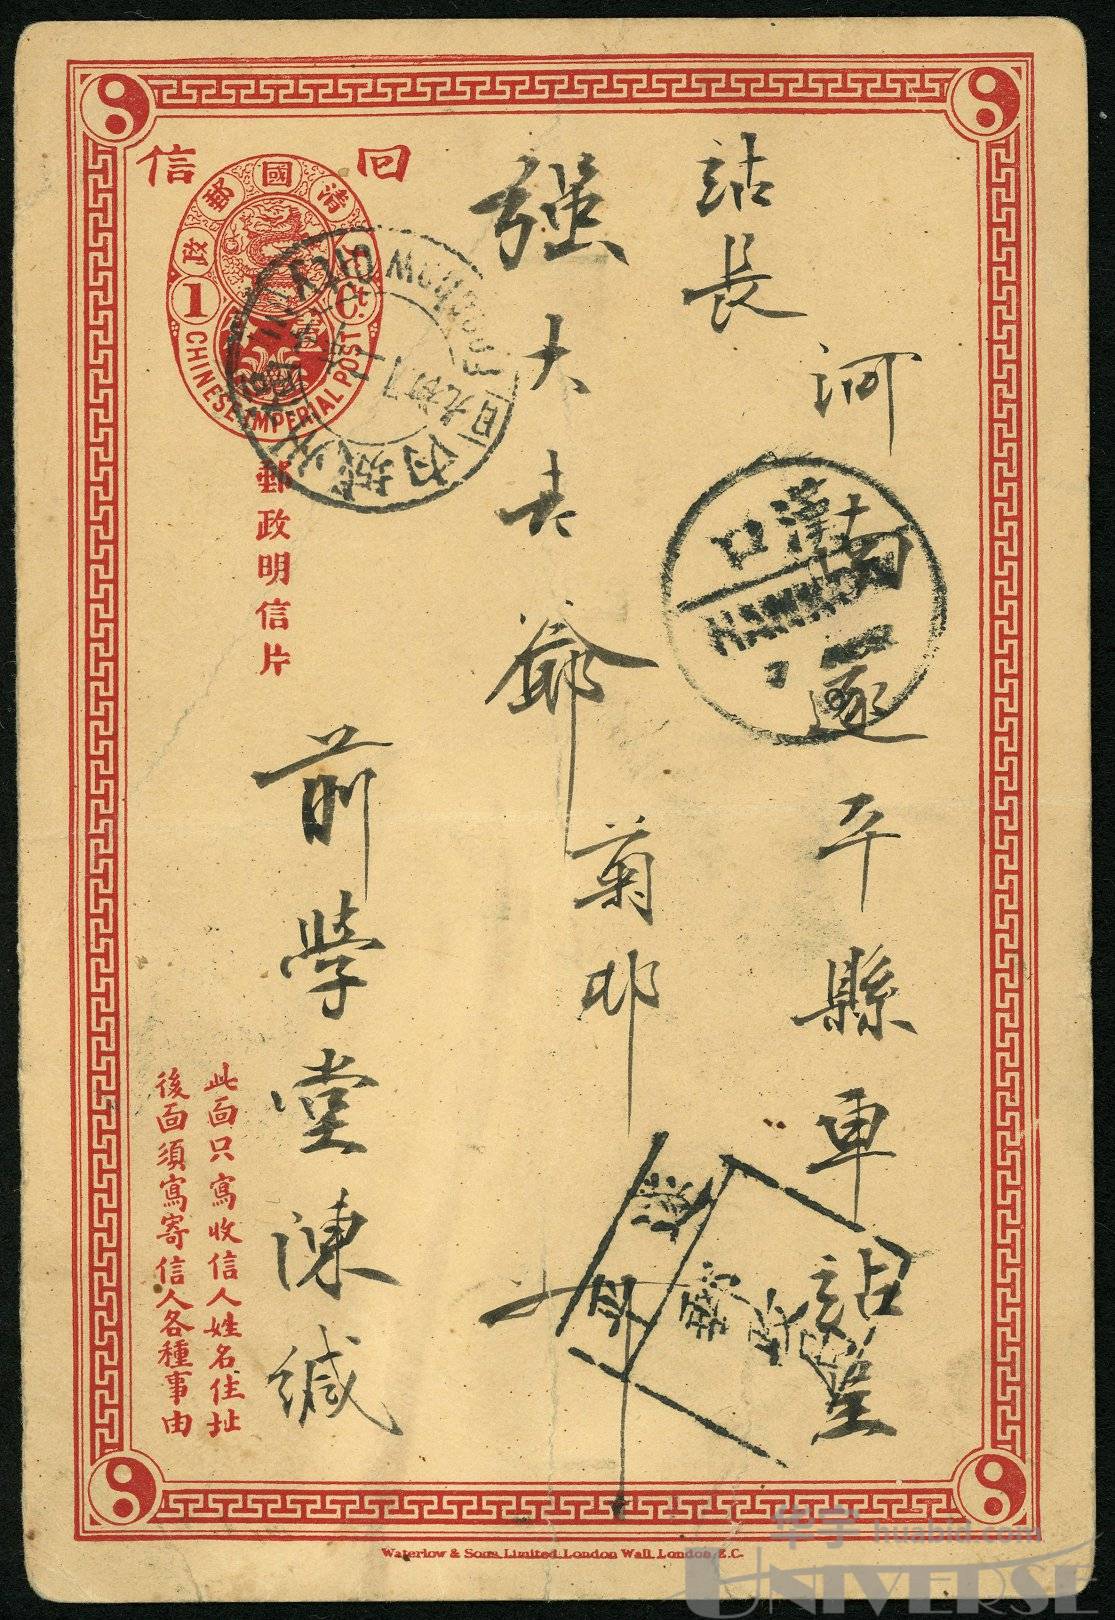 回 信
大清國郵政
1 Ct.
CHINESE IMPERIAL POST
郵政明信片
此面只寫收信人姓名住址
後面須寫寄信人各種事由
河南遂平縣車站呈
站長
强大老爺
菊邨
前學堂陳緘
漢口
HANKOW
FOOCHOW CITY
福州城內
Waterlow & Sons Limited. London Wall, London, E.C.
华宇 huabid.com
UNIVERSE